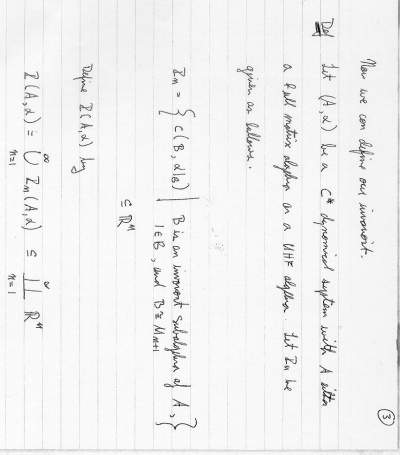 ③
Now we can define our invariant.
Def Let (A, α) be a C* dynamical system with A either
a full matrix algebra or a UHF algebra. Let Iₙ be
given as follows.
Iₙ = { C(B, α|_B) | B is an invariant subalgebra of A,
1 ∈ B, and B ≅ Mₙ₊₁ }
⊆ ℝⁿ
Define I(A, α) by
I(A, α) = ⋃ₙ₌₁^∞ Iₙ(A, α) ⊆ ∐ₙ₌₁^∞ ℝⁿ